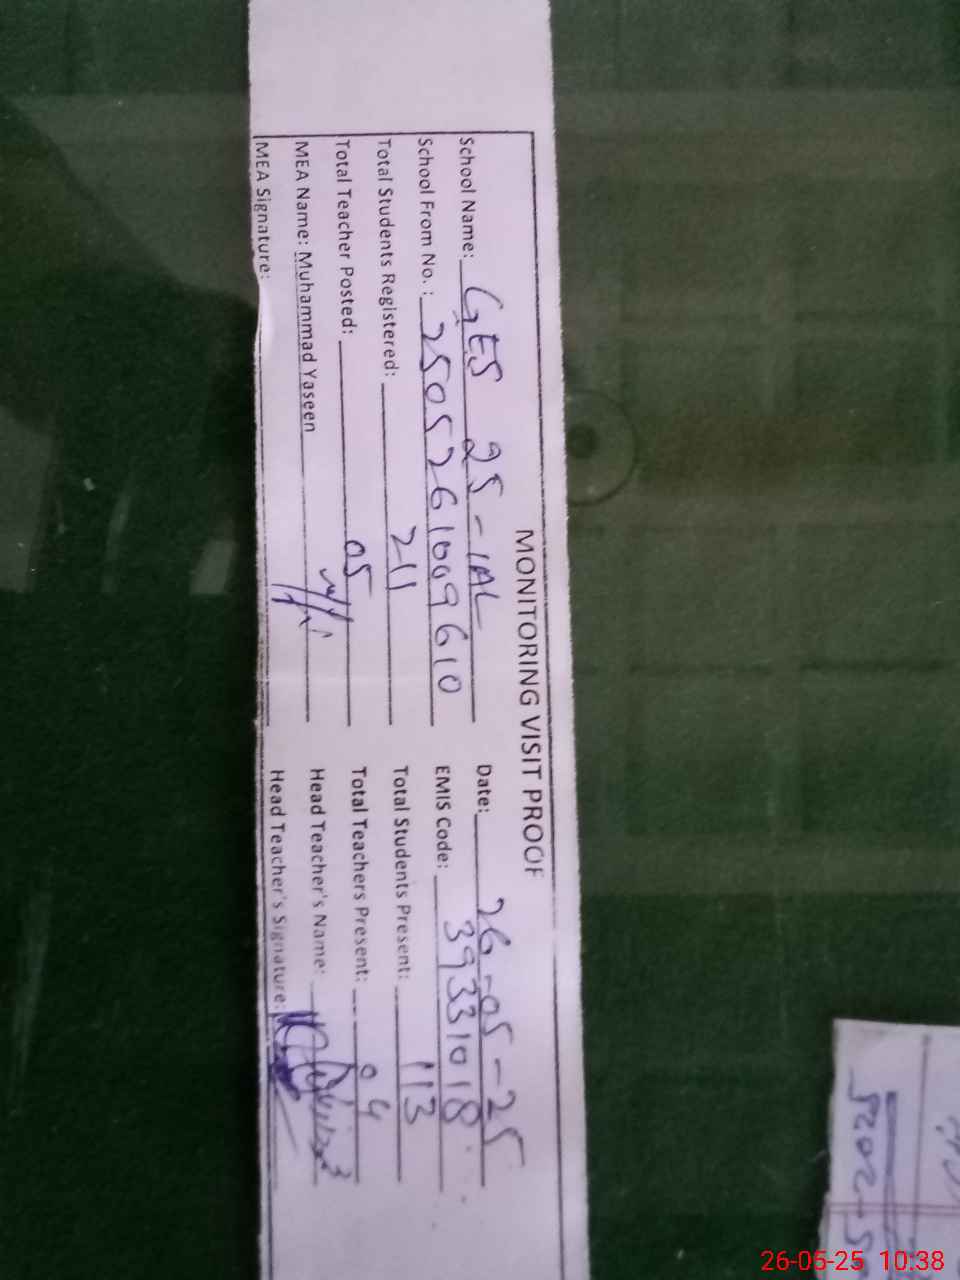 MONITORING VISIT PROOF
School Name: GES 25-1AL Date: 26-05-25
School From No. : 2505261009610 EMIS Code: 39331018
Total Students Registered: 211 Total Students Present: 113
Total Teacher Posted: 05 Total Teachers Present: 04
MEA Name: Muhammad Yaseen Head Teacher's Name:
MEA Signature: Head Teacher's Signature:
26-05-25 10:38